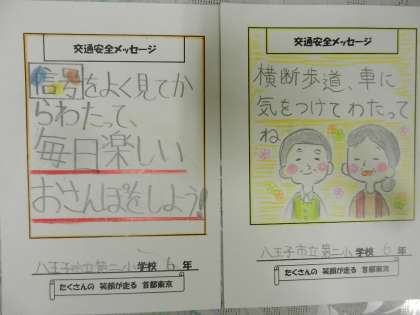 交通安全メッセージ
信号をよく見てか
らわたって、
毎日楽しい
おさんぽをしよう!
八王子市立第二小学校 6年
たくさんの 笑顔が走る 首都東京
交通安全メッセージ
横断歩道、車に
気をつけてわたって
ね
八王子市立第二小学校 6年
たくさんの 笑顔が走る 首都東京